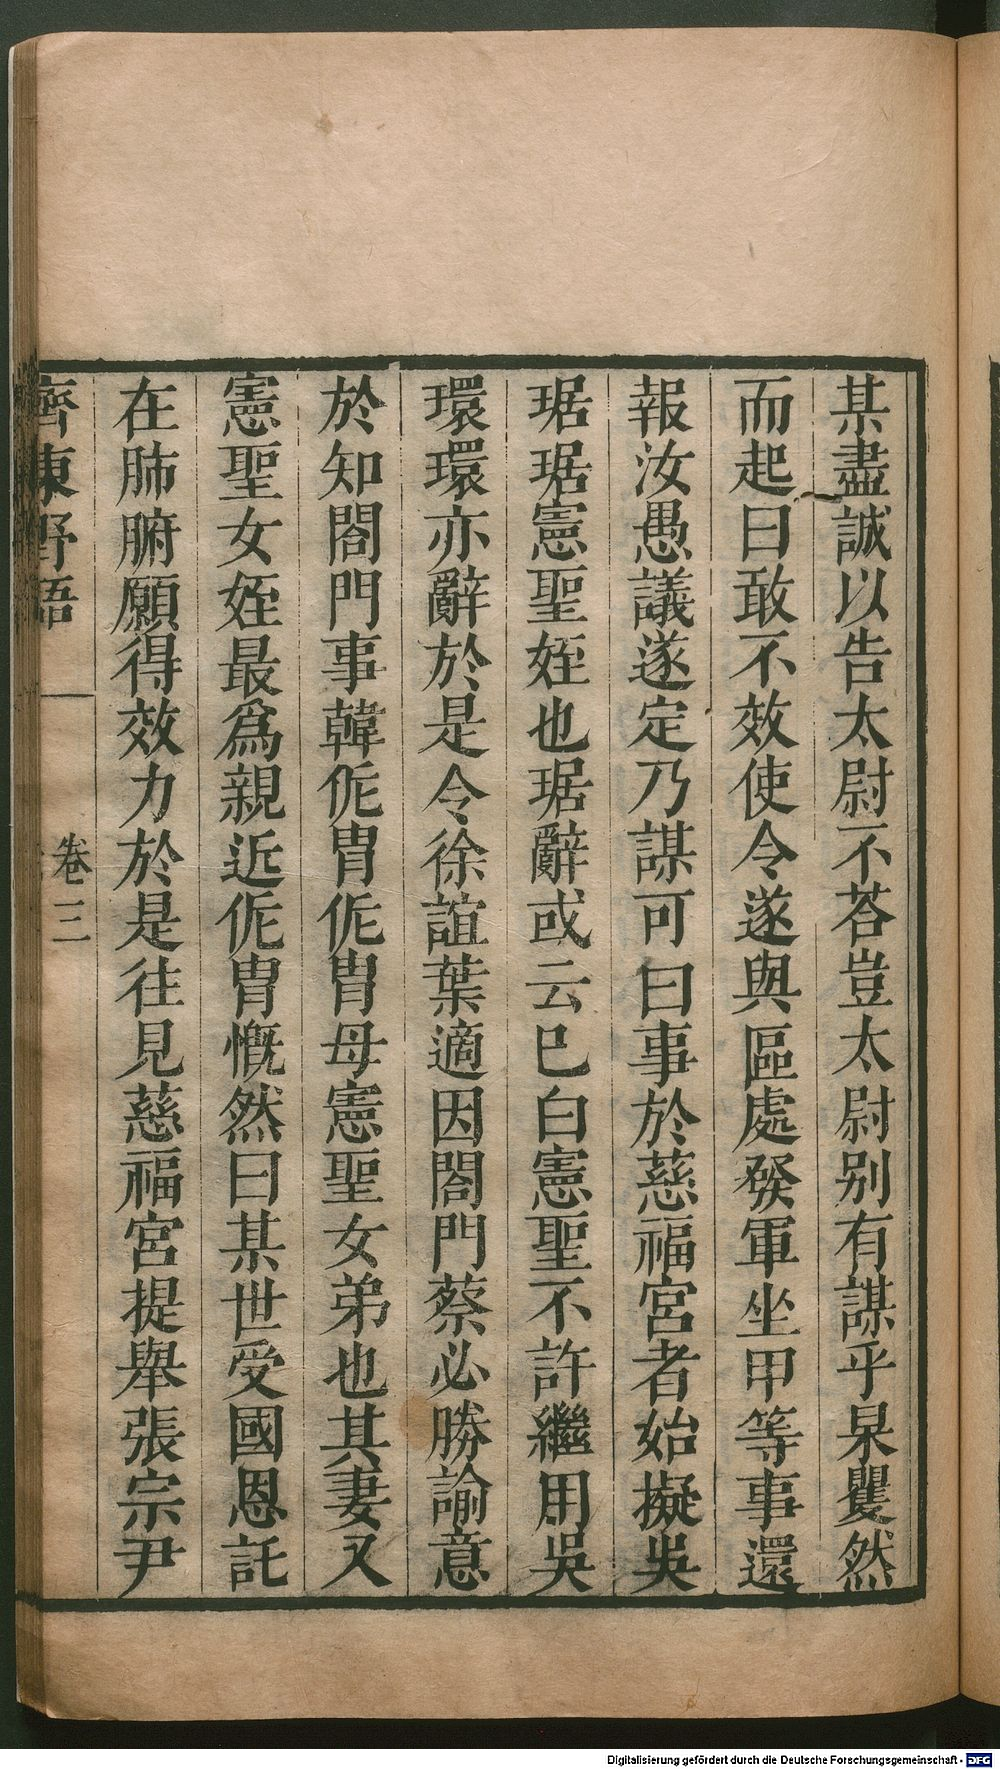 某盡誠以告太尉不荅豈太尉别有謀乎杲矍然
而起曰敢不效使令遂與區處發軍坐甲等事還
報汝愚議遂定乃謀可曰事於慈福宮者始擬吳
琚琚憲聖姪也琚辭或云巳白憲聖不許繼用吳
環環亦辭於是令徐誼葉適因閤門蔡必勝諭意
於知閤門事韓侂胄侂胄母憲聖女弟也其妻又
憲聖女姪最爲親近侂胄慨然曰某世受國恩託
在肺腑願得效力於是往見慈福宮提舉張宗尹
齊東野語 卷三
Digitalisierung gefördert durch die Deutsche Forschungsgemeinschaft - DFG